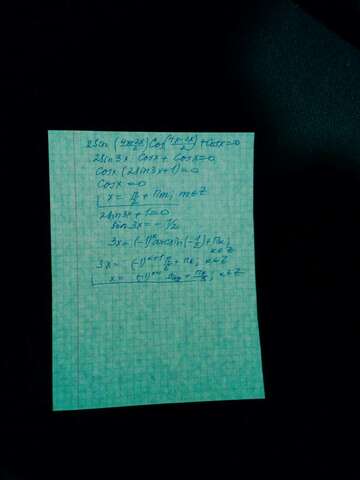 2Sin (4x+2x/2) Cos (4x-2x/2) + Cosx=0
2Sin3x Cosx + Cosx=0
Cosx (2Sin3x+1)=0
Cosx=0
x= π/2 + πm; m∈Z
2Sin3x+1=0
Sin3x=-1/2
3x=(-1)ᵏarcsin(-1/2)+πk;
k∈Z
3x= (-1)ᵏ⁺¹ π/6 + πk; k∈Z
x= (-1)ᵏ⁺¹ π/18 + πk/3; k∈Z